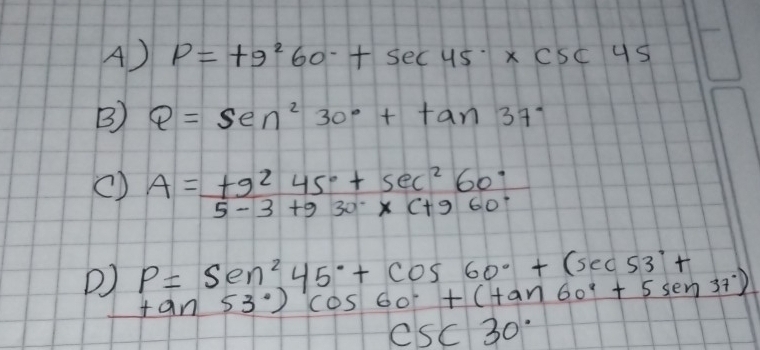 A) P = tg² 60° + sec 45° x csc 45
B) Q = sen² 30° + tan 37°
C) A = tg² 45° + sec² 60°
5 - 3 tg 30° x ctg 60°
D) P = sen² 45° + cos 60° + (sec 53° +
tan 53°) cos 60° + (tan 60° + 5 sen 37°)
csc 30°